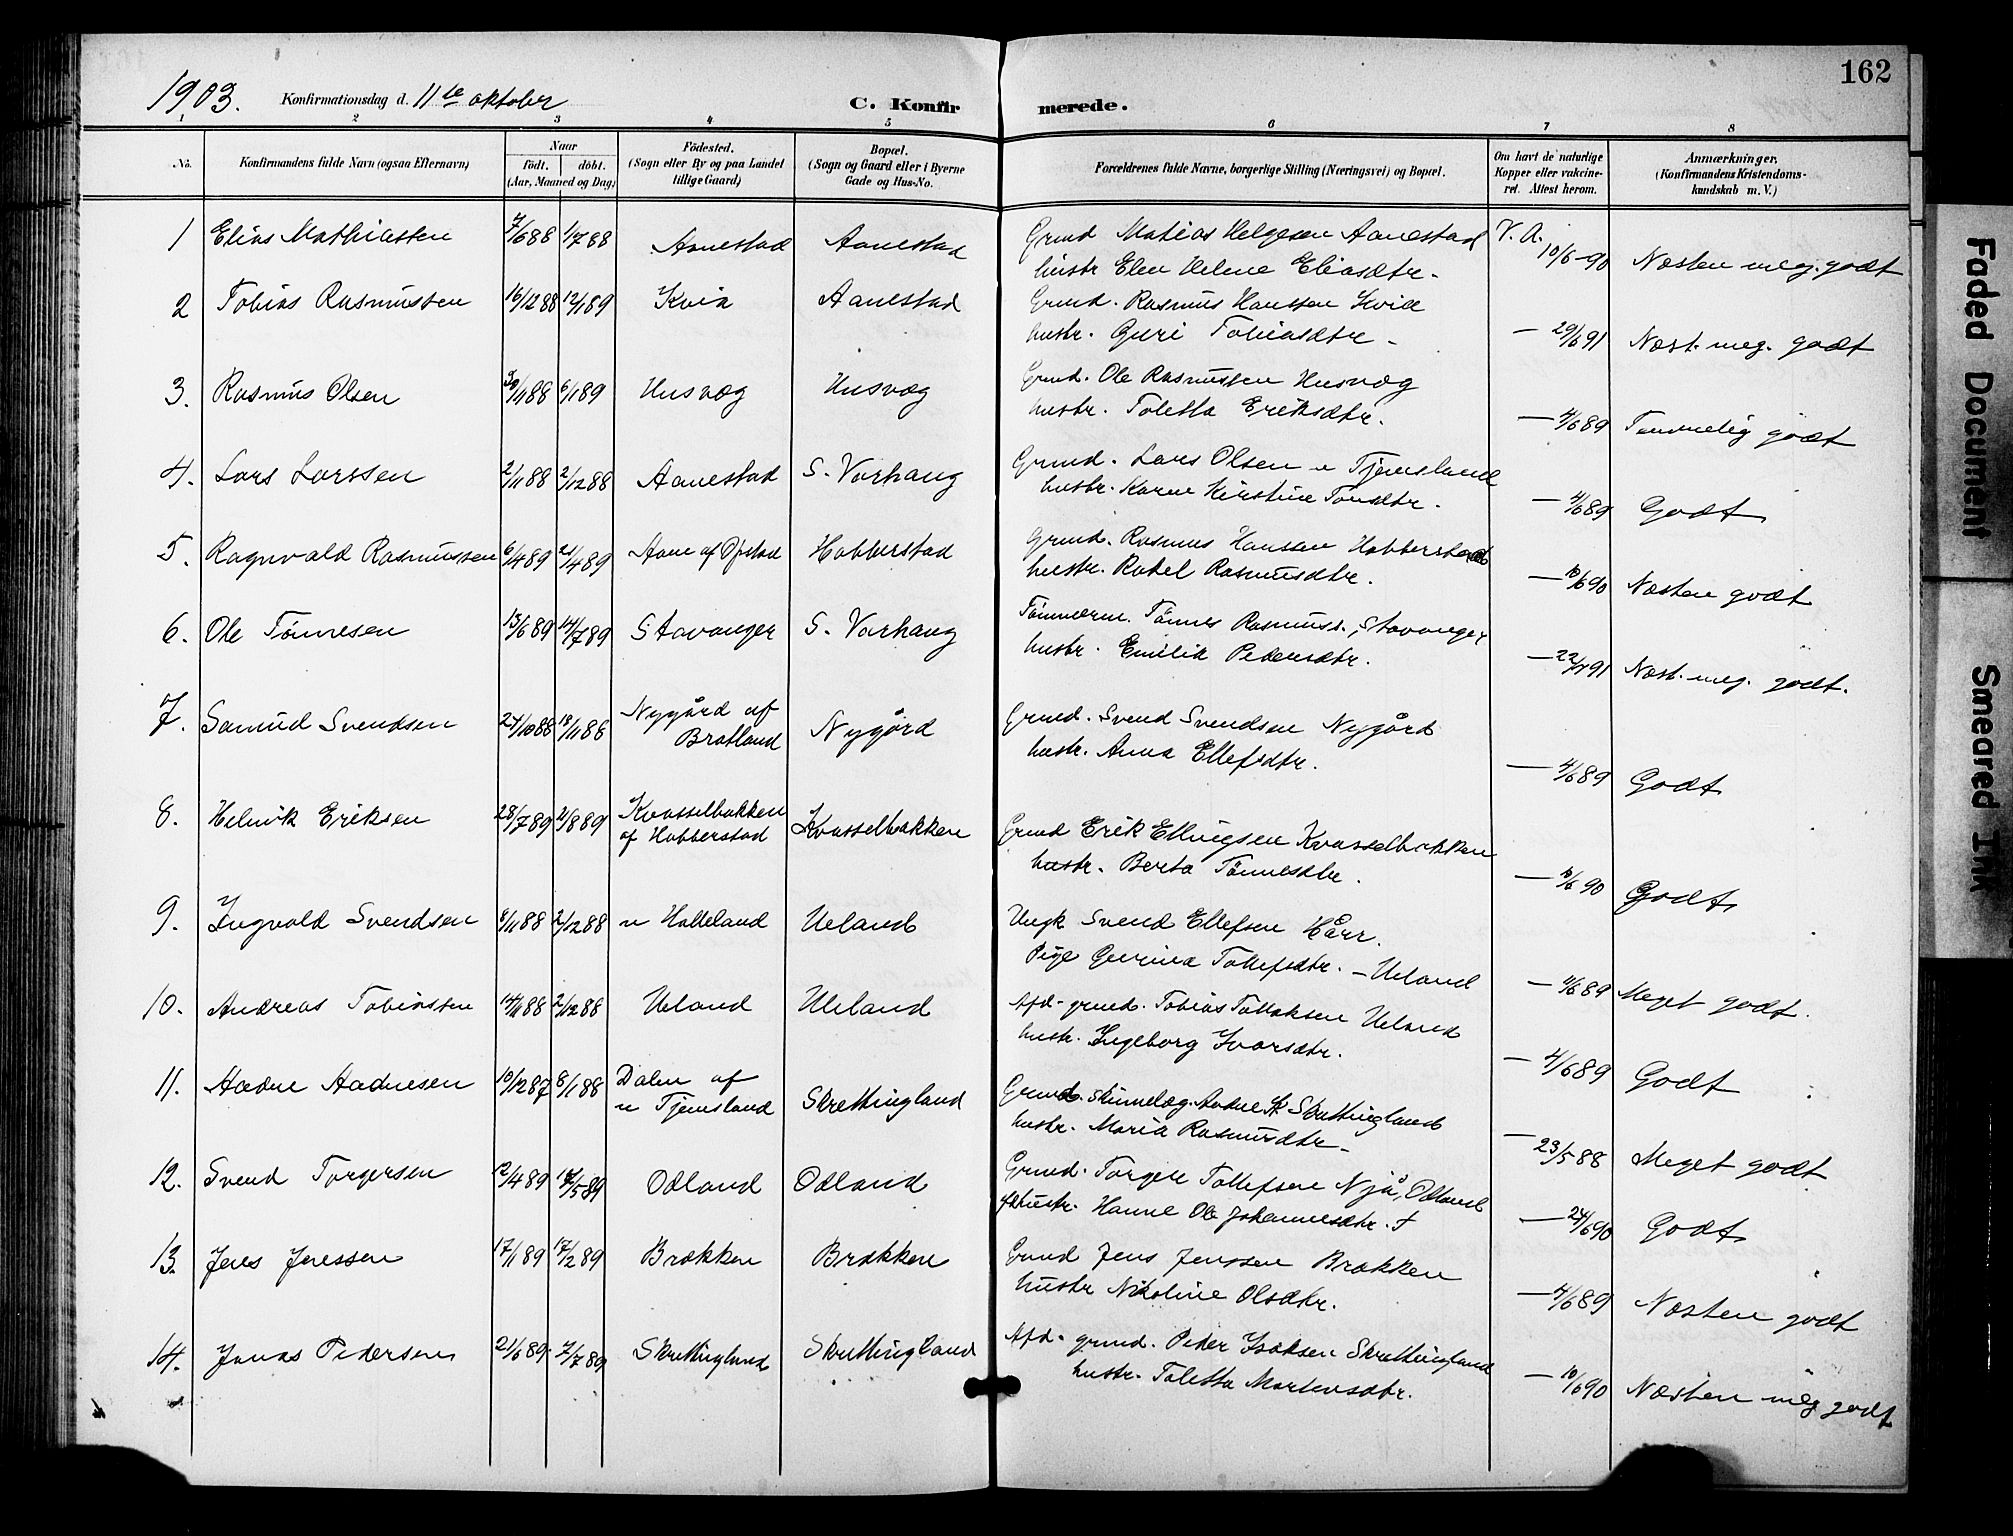 162
1903. Konfirmationsdag d. 11te oktober C. Konfirmerede.
1 2 3 4 5 6 7 8
No. Konfirmandens fulde Navn (ogsaa Efternavn) Naar födt. döbt. (Aar, Maaned og Dag) Födested. (Sogn eller By og paa Landet tillige Gaard) Bopæl. (Sogn og Gaard eller i Byerne Gade og Hus-No. Forældrenes fulde Navne, borgerlige Stilling (Næringsvei) og Bopæl. Om havt de naturlige Kopper eller vakcineret. Attest herom. Anmærkninger. (Konfirmandens Kristendomskundskab m. V.)
1 Elias Mathiassen 7/6 88 1/7 88 Aanestad Aanestad Grmd Matias Helgesen Aanestad V. A. 10/6-90 Næsten meg. godt
hustr Elen Helene Eliasdtr.
2 Tobias Rasmussen 16/12 88 12/1 89 Kvia Aanestad Grmd. Rasmus Hanssen Kvia
hustr. Guri Tobiasdtr. — 29/6 91 Næst. meg. godt
3. Rasmus Olsen 30/11 88 6/1 89 Husvæg Husvæg Grmd. Ole Rasmussen Husvæg
hustr. Taletta Eriksdtr. — 4/6 89 Temmelig godt
4. Lars Larssen 2/11 88 2/12 88 Aanestad S. Varhaug Grmd. Lars Olsen n Tjemsland
hustr. Karen Kirstine Tonsdtr. — 4/6 89 Godt
5. Ragnvald Rasmussen 6/4 89 21/4 89 Aane af Opstad Habberstad Grmd. Rasmus Hanssen Habberstad
hustr. Rakel Rasmusdtr. — 10/6 90 Næsten godt
6. Ole Tönnesen 13/6 89 14/7 89 Stavanger S. Varhaug Tömmerm. Tönnes Rasmuss., Stavanger
hustr. Emilia Pedersdtr. — 91 Næst. meg. godt.
7. Samuel Svendsen 24/10 88 18/11 88 Nygård af Bratland Nygård Grmd. Svend Svendsen Nygård
hustr. Anna Ellefsdtr. — 4/6 89 Godt
8. Helmik Eriksen 28/7 89 /8 89 Kvasselbakken af Habberstad Kvasselbakken Grmd Erik Ellingsen Kvasselbakken
hustr. Berta Tönnesdtr. — /6 90 Godt
9. Ingvald Svendsen 8/11 88 2/12 88 n Halleland Ueland Ungk Svend Ellefsen Hårr.
Pige Gurina Tollefsdtr. — Ueland — 4/6 89 Meget godt.
10. Andreas Tobiassen 14/11 88 2/12 88 Ueland Ueland Afd. grmd. Tobias Tollaksen Ueland
hustr. Ingeborg Ivarsdtr. — 4/6 89 Godt
11. Aadne Aadnesen 10/12 87 8/1 88 Dalen af n Tjemsland Skrettingland Grmd. Aadne Skrettingland
hustr. Maria Rasmusdtr. — 23/5 88 Meget godt
12. Svend Torgersen 12/4 89 /5 89 Odland Odland Grmd. Torger Tollefsen Njå, Odland
hustr. Hanne Ole Johannesdtr. † — 24/6 90 Godt
13. Jens Jenssen 17/1 89 17/2 89 Brækken Brækken Grmd Jens Jenssen Brækken
hustr Nikoline Olsdtr. — 4/6 89 Næsten godt
14. Jonas Pedersen 21/6 89 7/7 89 Skrettingland Skrettingland Afd. grmd. Peder Isaksen Skrettingland
hustr. Taletta Mortensdtr. — 10/6 90 Næsten meg godt
Faded Document
Smeared Ink